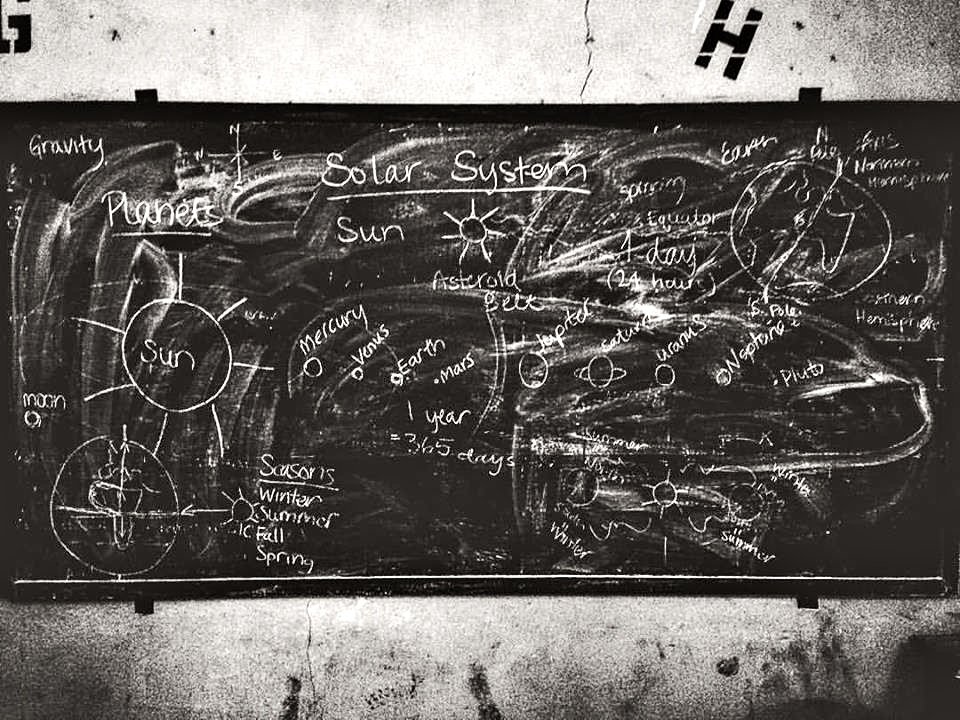 G
H
Gravity
N
E
S
Solar System
Planets
Sun
Earth
N
Pole
Axis
Northern
Hemisphere
spinning
Equator
1 day
(24 hours)
S. Pole
Hemisphere
Asteroid
Belt
Sun
Mercury
Venus
Earth
Mars
Jupiter
Saturn
Uranus
Neptune
Pluto
1 year
= 365 days
moon
Seasons
Winter
Summer
Fall
Spring
Summer
Winter
Winter
Summer